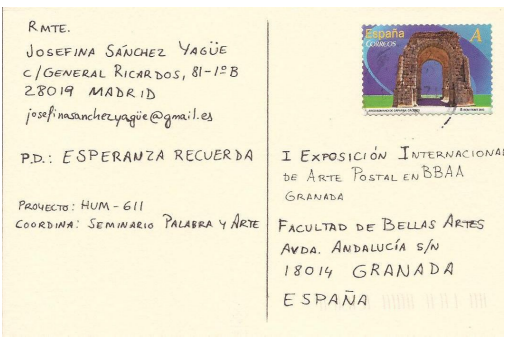 RMTE.
JOSEFINA SÁNCHEZ YAGÜE
C/GENERAL RICARDOS, 81-1º B
28019 MADRID
josefinasanchezyagüe@gmail.es
P.D.: ESPERANZA RECUERDA
PROYECTO: HUM-611
COORDINA: SEMINARIO PALABRA Y ARTE
España
CORREOS
A
I EXPOSICIÓN INTERNACIONAL
DE ARTE POSTAL EN BBAA
GRANADA
FACULTAD DE BELLAS ARTES
AVDA. ANDALUCÍA S/N
18014 GRANADA
ESPAÑA